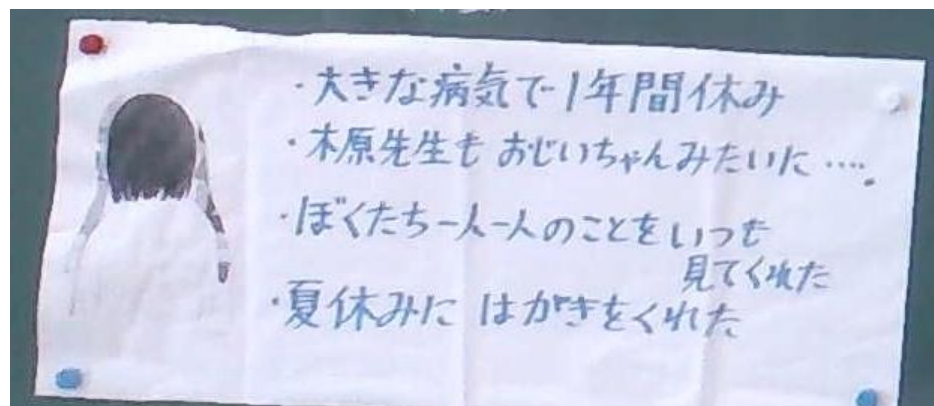 ・大きな病気で1年間休み
・木原先生も おじいちゃんみたいに‥‥。
・ぼくたち一人一人のことをいつも
見てくれた
・夏休みに はがきをくれた